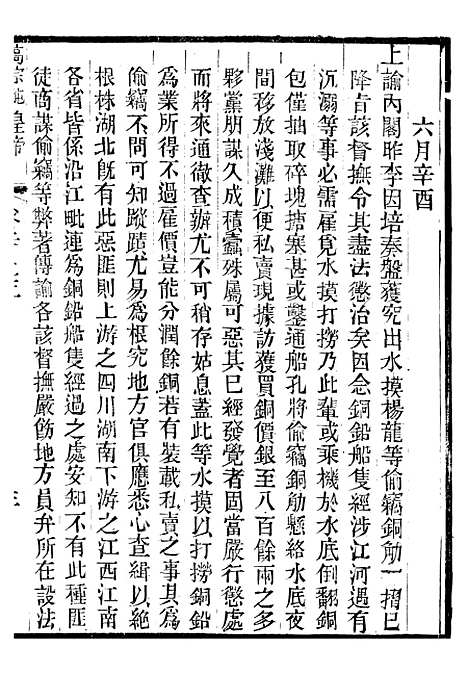 六月辛酉
上諭內閣昨李因培奏盤獲究出水摸楊龍等偷竊銅觔一摺已
降旨該督撫令其盡法懲治矣因念銅鉛船隻經涉江河遇有
沉溺等事必需雇覓水摸打撈乃此輩或乘機於水底翻銅
包僅抽取碎塊搪塞甚或鑿通船孔將偷竊銅觔懸絡水底夜
間移放淺灘以便私賣現據訪獲買銅價銀至八百餘兩之多
夥黨朋謀久成積蠹殊屬可惡其已經發覺者固當嚴行懲處
而將來通徹查辦尤不可稍存姑息蓋此等水摸以打撈銅鉛
為業所得不過雇價豈能分潤餘銅若有裝載私賣之事其為
偷竊不問可知蹤蹟尤易為根究地方官俱應悉心查緝以絶
根株湖北旣有此惡匪則上游之四川湖南下游之江西江南
各省皆係沿江毗連為銅鉛船隻經過之處安知不有此種匪
徒商謀偷竊等弊著傳諭各該督撫嚴飭地方員弁所在設法
高宗純皇帝
三